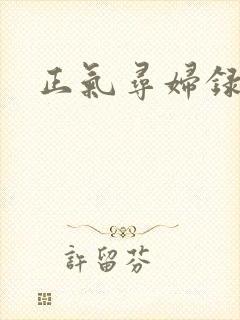 正氣尋婦録
許留芬